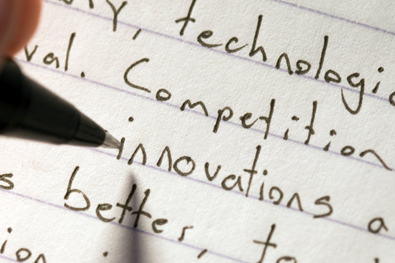 y, technologic
val. Competition
innovations a
s better, to
ion.